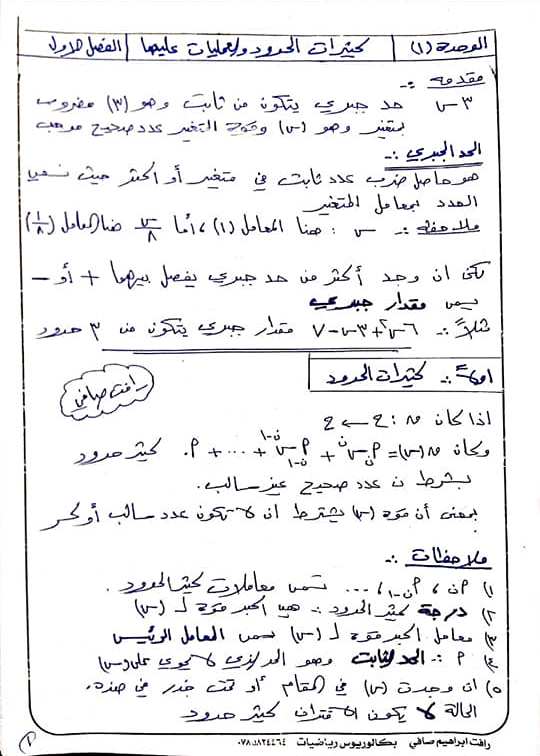 الوحدة (١) كثيرات الحدود والعمليات عليها الفصل الأول
مقدمه :-
٣س حد جبري يتكون من ثابت وهو (٣) مضروب
بمتغير وهو (س) وقوة المتغير عدد صحيح موجب
الحد الجبري :-
هو حاصل ضرب عدد ثابت في متغير أو أكثر حيث نسمي
العدد بمعامل المتغير
ملاحظه :- س : هنا المعامل (١) ، أما س/٨ هنا المعامل (١/٨)
لكن ان وجد أكثر من حد جبري يفصل بينهما + أو -
يسمى مقدار جبري
مثلاً :- ٦س٢+٣س-٧ مقدار جبري يتكون من ٣ حدود
أولاً :- كثيرات الحدود
رأفت صافي
اذا كان ق : ح ← ح
وكان ق(س) = أن سن + أن-١ سن-١ + ... + أ. كثير حدود
بشرط ن عدد صحيح غير سالب.
بمعنى أن قوة (س) يشترط ان لا تكون عدد سالب أو كسر
ملاحظات :-
١) أن ، أن-١ ، ... تسمى معاملات كثير الحدود.
٢) درجة كثير الحدود :- هي اكبر قوة لـ (س)
٣) معامل اكبر قوة لـ (س) يسمى المعامل الرئيسي
٤) أ. :- الحد الثابت وهو الحد الذي لا يحوي على (س)
٥) ان وجدت (س) في المقام أو تحت جذر في هذه
الحالة لا يكون الاقتران كثير حدود
رأفت ابراهيم صافي بكالوريوس رياضيات ٠٧٨٥٨٢٤٤٦٤